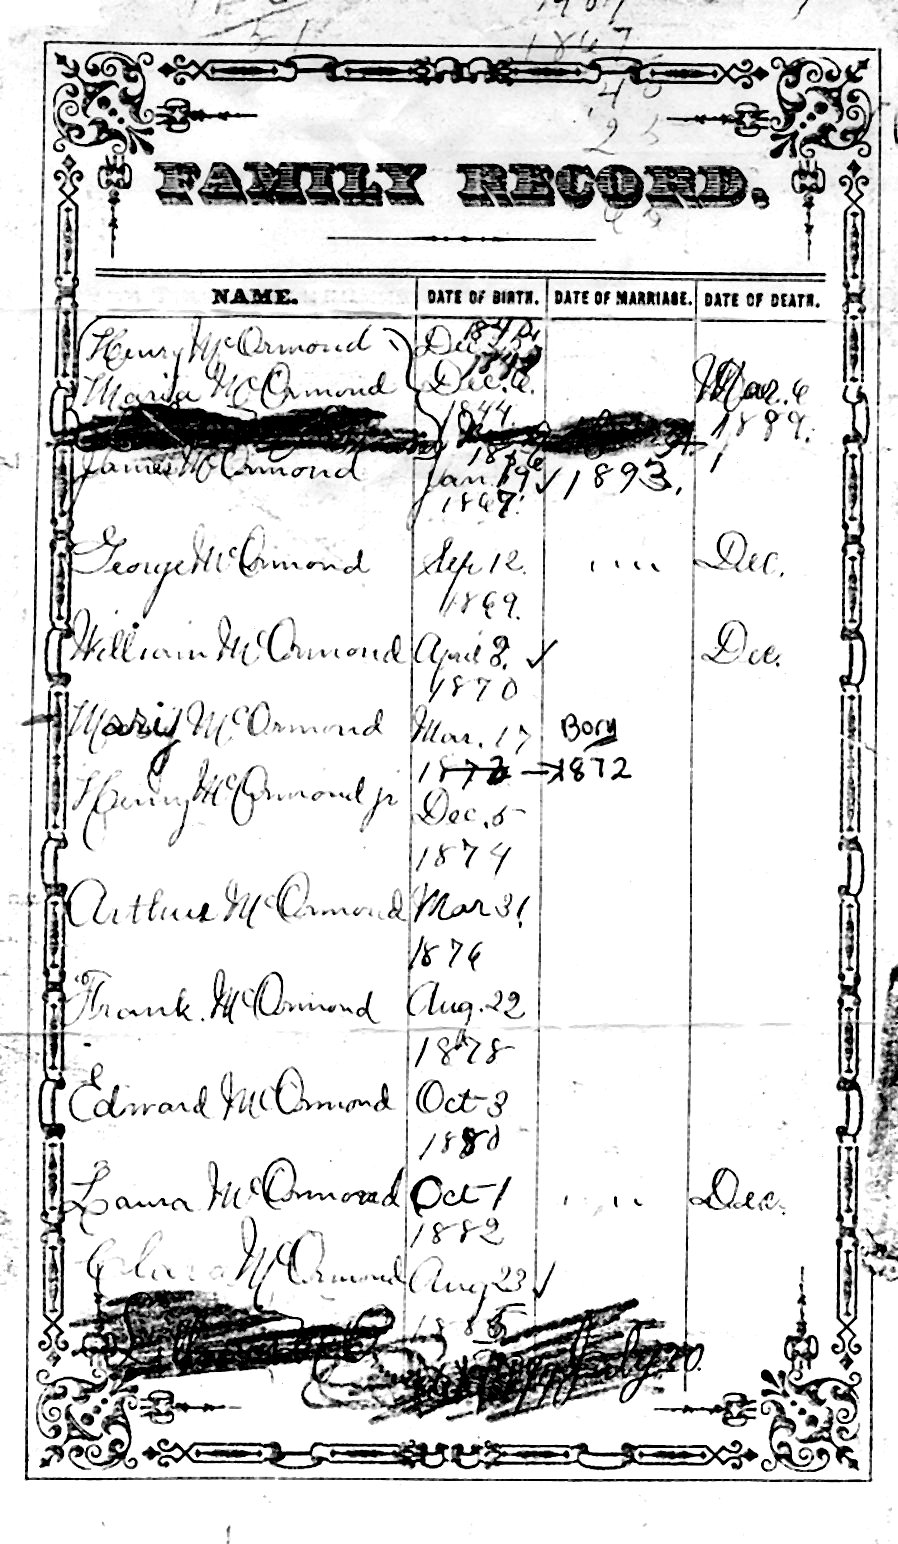 1867
45
25
FAMILY RECORD.
NAME. DATE OF BIRTH. DATE OF MARRIAGE. DATE OF DEATH.
Henry McOrmond Dec. 25
Maria McOrmond Dec. 6. Mar. 6
1844 1889.
James McOrmond Jan. 19 ✓ 1893.
1867.
George McOrmond Sep 12. .... Dec.
1869.
William McOrmond April 8. ✓ Dec.
1870
Mary McOrmond Mar. 17 Born
1873 → 1872
Henry McOrmond jr Dec. 5
1874
Arthur McOrmond Mar 31
1876
Frank. McOrmond Aug. 22
1878
Edward McOrmond Oct 3
1880
Laura McOrmond Oct 1 .... Dec.
1882
Clara McOrmond Aug 23 ✓
1885
July 20.